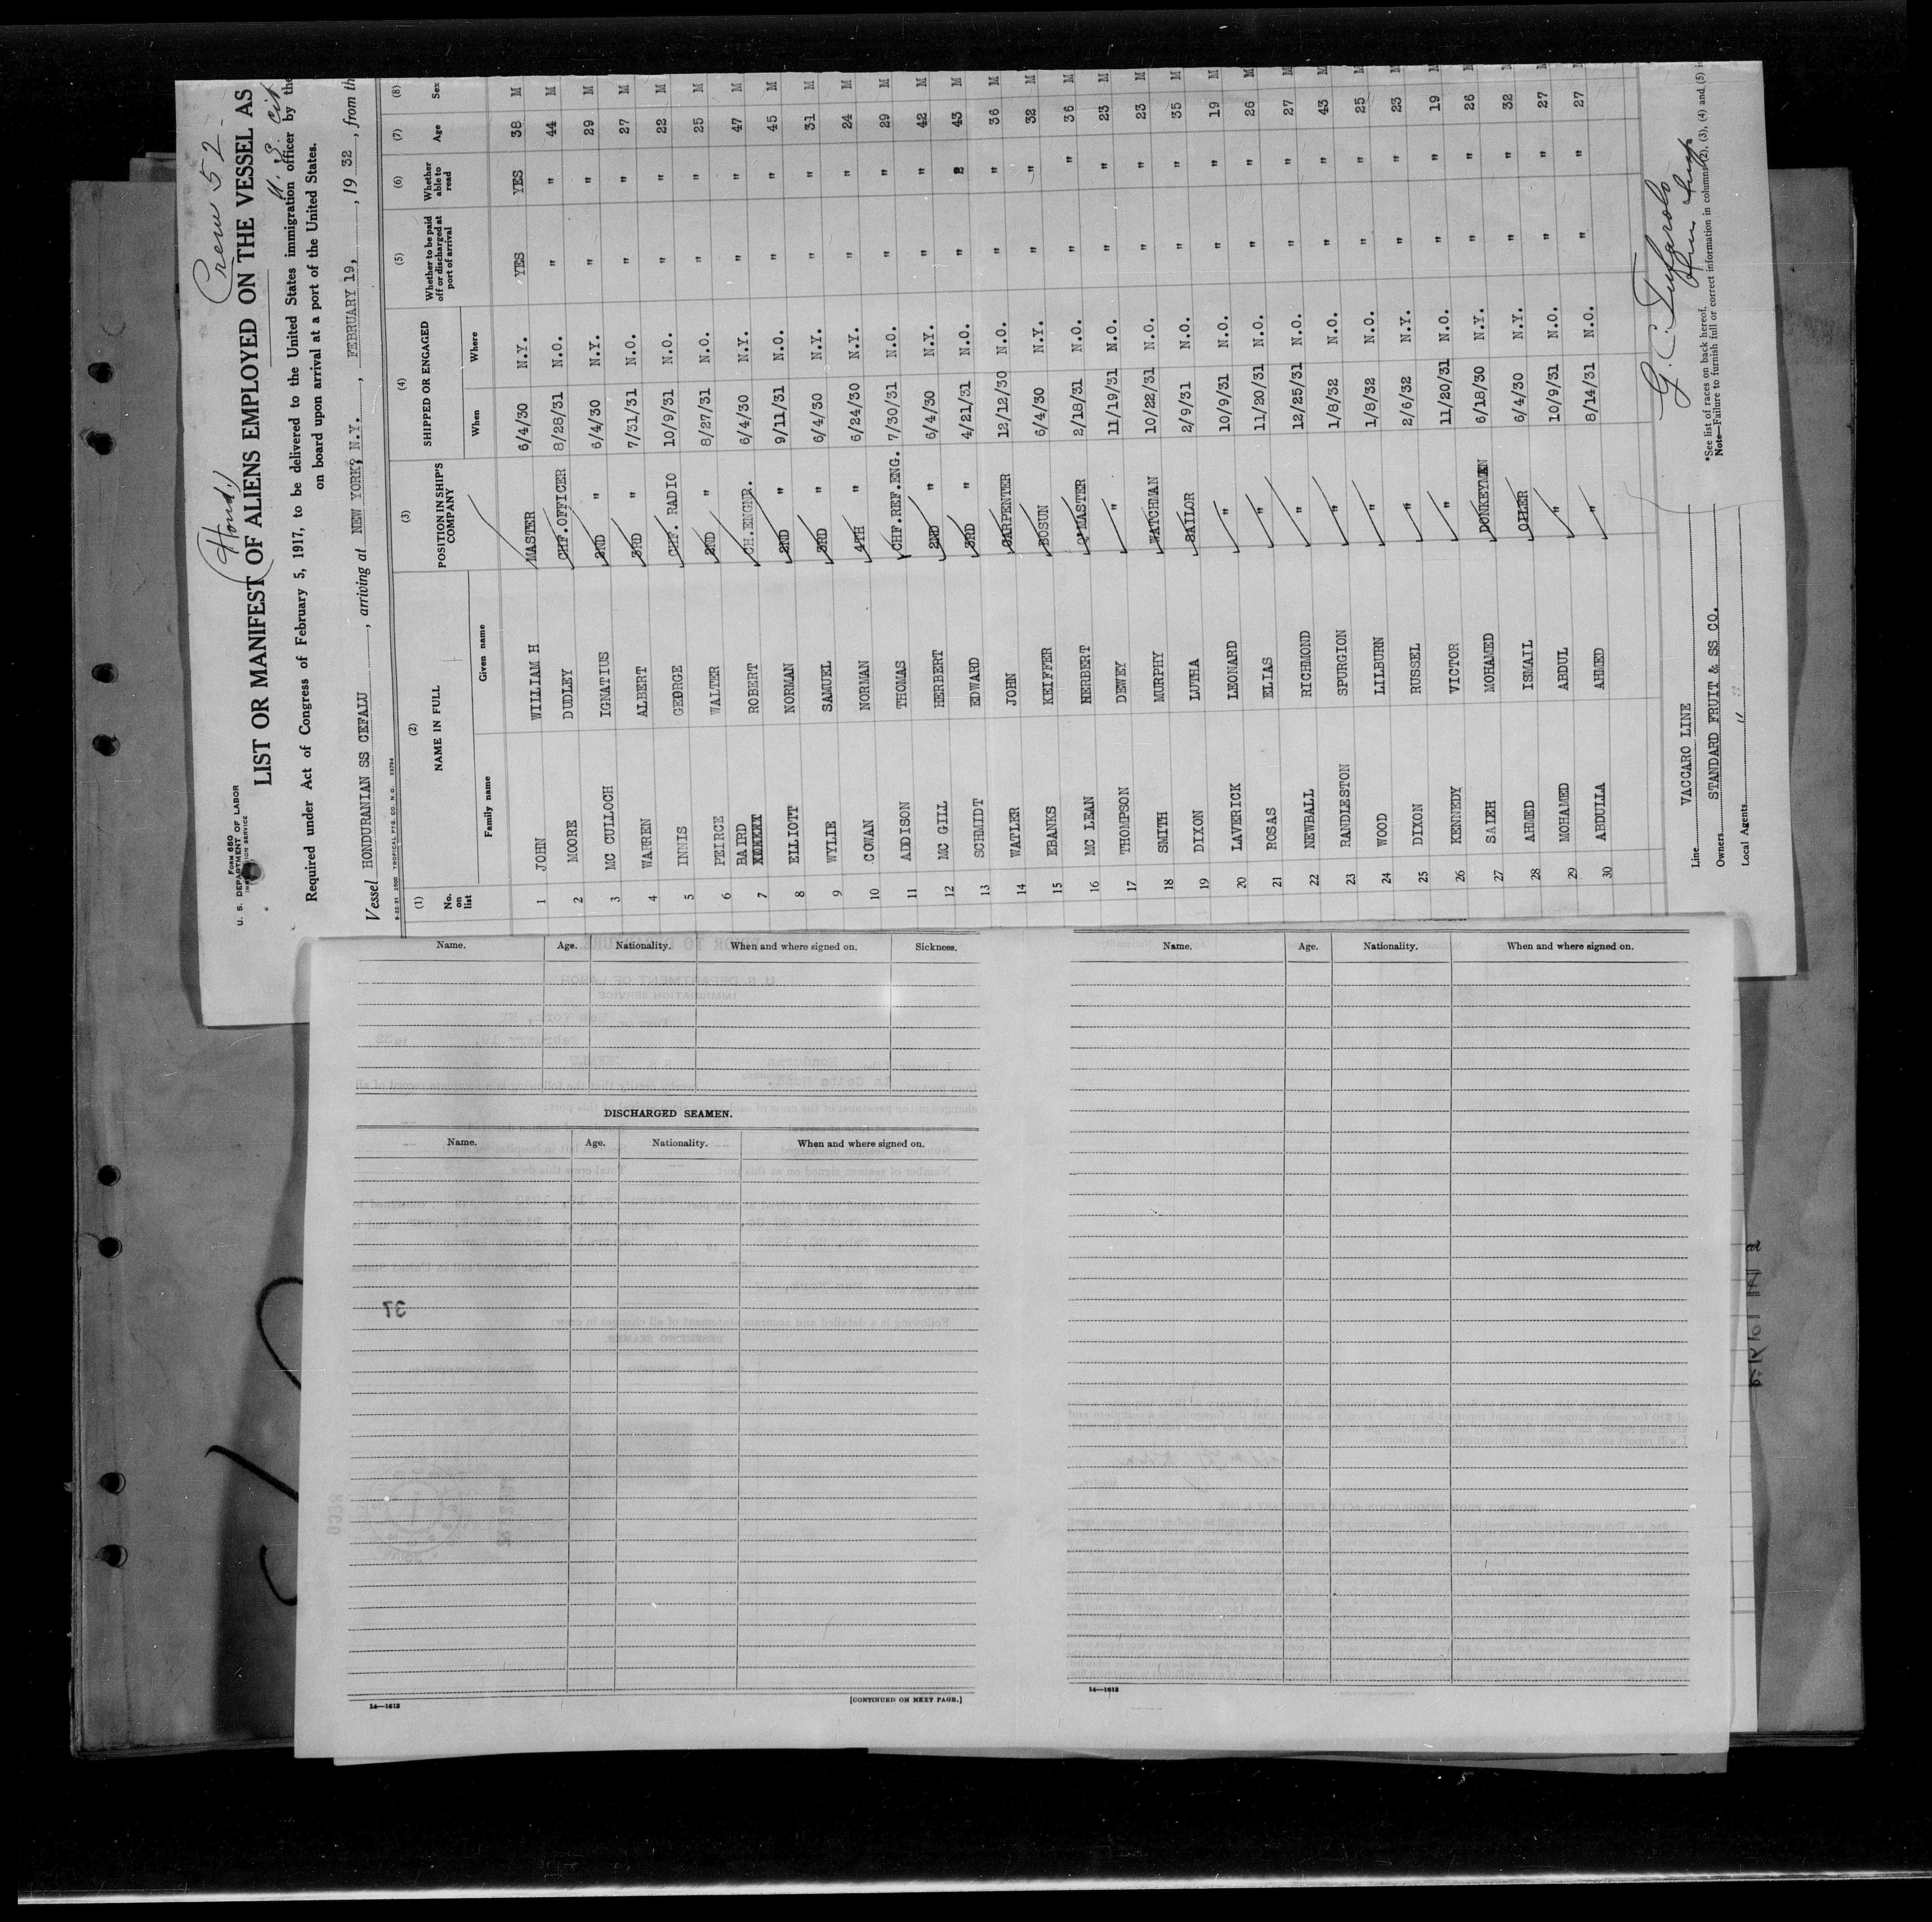 Form 680
U. S. DEPARTMENT OF LABOR
IMMIGRATION SERVICE
(Hond.)
Crew 52 -
LIST OR MANIFEST OF ALIENS EMPLOYED ON THE VESSEL AS
Required under Act of Congress of February 5, 1917, to be delivered to the United States immigration officer by the
on board upon arrival at a port of the United States.
Vessel HONDURANIAN SS CEFALU, arriving at NEW YORK, N.Y., FEBRUARY 19, 19 32, from th
(1) (2) (3) (4) (5) (6) (7) (8)
No. on list NAME IN FULL POSITION IN SHIP'S COMPANY SHIPPED OR ENGAGED Whether to be paid off or discharged at port of arrival Whether able to read Age Sex
Family name Given name When Where
1 JOHN WILLIAM H MASTER 6/4/30 N.Y. YES YES 38 M
2 MOORE DUDLEY CHF.OFFICER 8/28/31 N.O. " " 44 M
3 MC CULLOCH IGNATIUS 2ND " 6/4/30 N.Y. " " 29 M
4 WARREN ALBERT 3RD " 7/31/31 N.O. " " 27 M
5 INNIS GEORGE CHF. RADIO 10/9/31 N.O. " " 22 M
6 PEIRCE WALTER 2ND " 8/27/31 N.O. " " 25 M
7 BAIRD ROBERT CH.ENGNR. 6/4/30 N.Y. " " 47 M
8 ELLIOTT NORMAN 2ND " 9/11/31 N.O. " " 45 M
9 WYLIE SAMUEL 3RD " 6/4/30 N.Y. " " 31 M
10 COWAN NORMAN 4TH " 6/24/30 N.Y. " " 24 M
11 ADDISON THOMAS CHF.REF.ENG. 7/30/31 N.O. " " 29 M
12 MC GILL HERBERT 2ND " 6/4/30 N.Y. " " 42 M
13 SCHMIDT EDWARD 3RD " 4/21/31 N.O. " " 43 M
14 WATLER JOHN CARPENTER 12/12/30 N.O. " " 36 M
15 EBANKS KEIFFER BOSUN 6/4/30 N.Y. " " 32 M
16 MC LEAN HERBERT Q'MASTER 2/18/31 N.O. " " 36 M
17 THOMPSON DEWEY " 11/19/31 N.O. " " 23 M
18 SMITH MURPHY WATCHMAN 10/22/31 N.O. " " 23 M
19 DIXON LUTHA SAILOR 2/9/31 N.O. " " 35 M
20 LAVERICK LEONARD " 10/9/31 N.O. " " 19 M
21 ROSAS ELIAS " 11/20/31 N.O. " " 26 M
22 NEWBALL RICHMOND " 12/25/31 N.O. " " 27 M
23 RANDLESTON SPURGION " 1/8/32 N.O. " " 43 M
24 WOOD LILBURN " 1/8/32 N.O. " " 25 M
25 DIXON RUSSEL " 2/6/32 N.Y. " " 23 M
26 KENNEDY VICTOR " 11/20/31 N.O. " " 19 M
27 SAIEH MOHAMED DONKEYMAN 6/18/30 N.Y. " " 26 M
28 AHMED ISMAIL OILER 6/4/30 N.Y. " " 32 M
29 MOHAMED ABDUL " 10/9/31 N.O. " " 27 M
30 ABDULLA AHMED " 8/14/31 N.O. " " 27 M
Line VACCARO LINE
Owners STANDARD FRUIT & SS CO.
Local Agents "
*See list of races on back hereof.
Note—Failure to furnish full or correct information in columns (2), (3), (4) and (5) i
Name. Age. Nationality. When and where signed on. Sickness.
DISCHARGED SEAMEN.
Name. Age. Nationality. When and where signed on.
37
14—1613
[CONTINUED ON NEXT PAGE.]
Name. Age. Nationality. When and where signed on.
14—1613